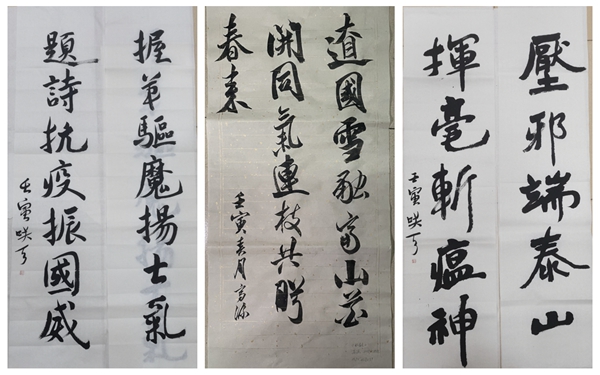 握筆驅魔揚士氣
題詩抗疫振國威
壬寅
遼國雪融富山花
開同氣連枝共盼
春來
壬寅春月
壓邪端泰山
揮毫斬瘟神
壬寅